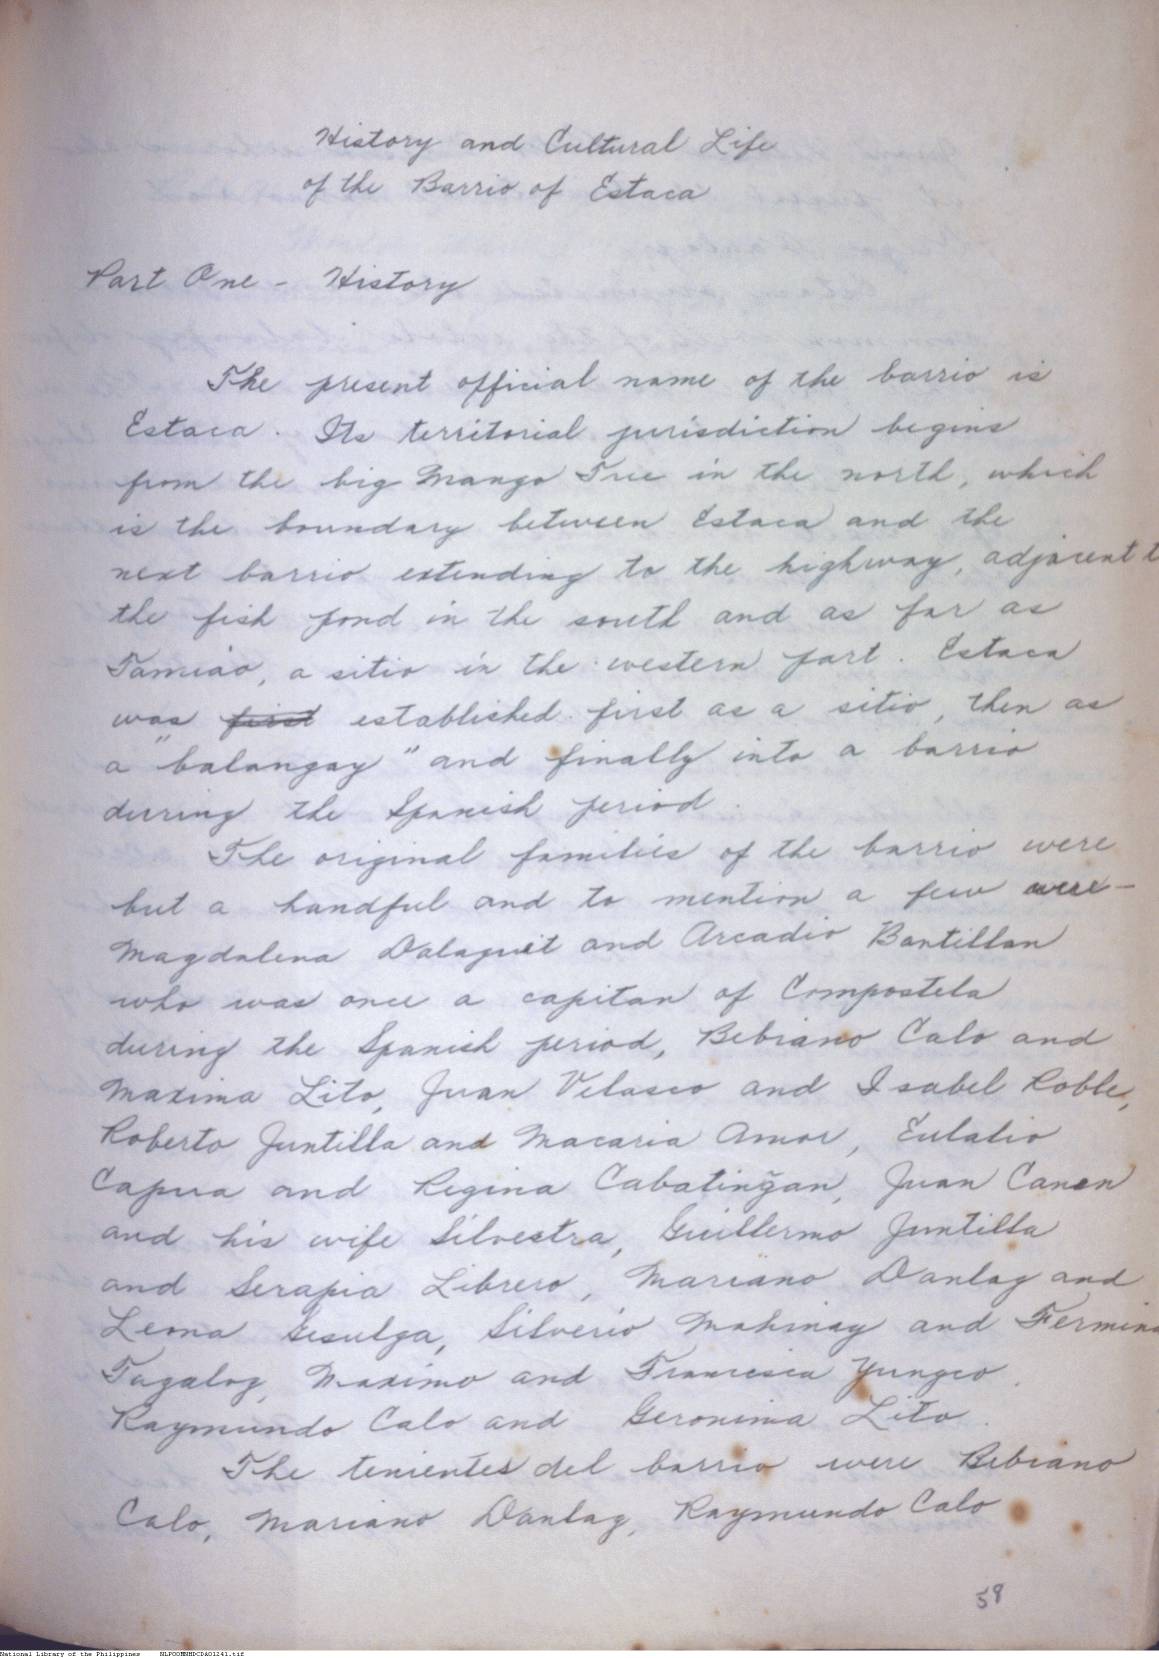 History and Cultural Life
of the Barrio of Estaca
Part One - History
The present official name of the barrio is
Estaca. Its territorial jurisdiction begins
from the big Mango Tree in the north, which
is the boundary between Estaca and the
next barrio extending to the highway, adjacent t
the fish pond in the south and as far as
Tamiao, a sitio in the western part. Estaca
was first established first as a sitio, then as
a "balangay" and finally into a barrio
during the Spanish period.
The original families of the barrio were
but a handful and to mention a few were -
Magdalena Dalaguit and Arcadio Bantillan
who was once a capitan of Compostela
during the Spanish period, Bebiano Calo and
Maxima Lito, Juan Velasco and Isabel Roble,
Roberto Juntilla and Macaria Amor, Eulalio
Capua and Regina Cabatingan, Juan Canen
and his wife Silvestra, Guillermo Juntilla
and Serapia Librero, Mariano Danlag and
Leona Gesulga, Silverio Mahinay and Fermina
Tagalog, Maximo and Francisca Yungco
Raymundo Calo and Geronima Lito.
The tenientes del barrio were Bebiano
Calo, Mariano Danlag, Raymundo Calo
58
National Library of the Philippines NLPOOMNHDCDA01241.tif